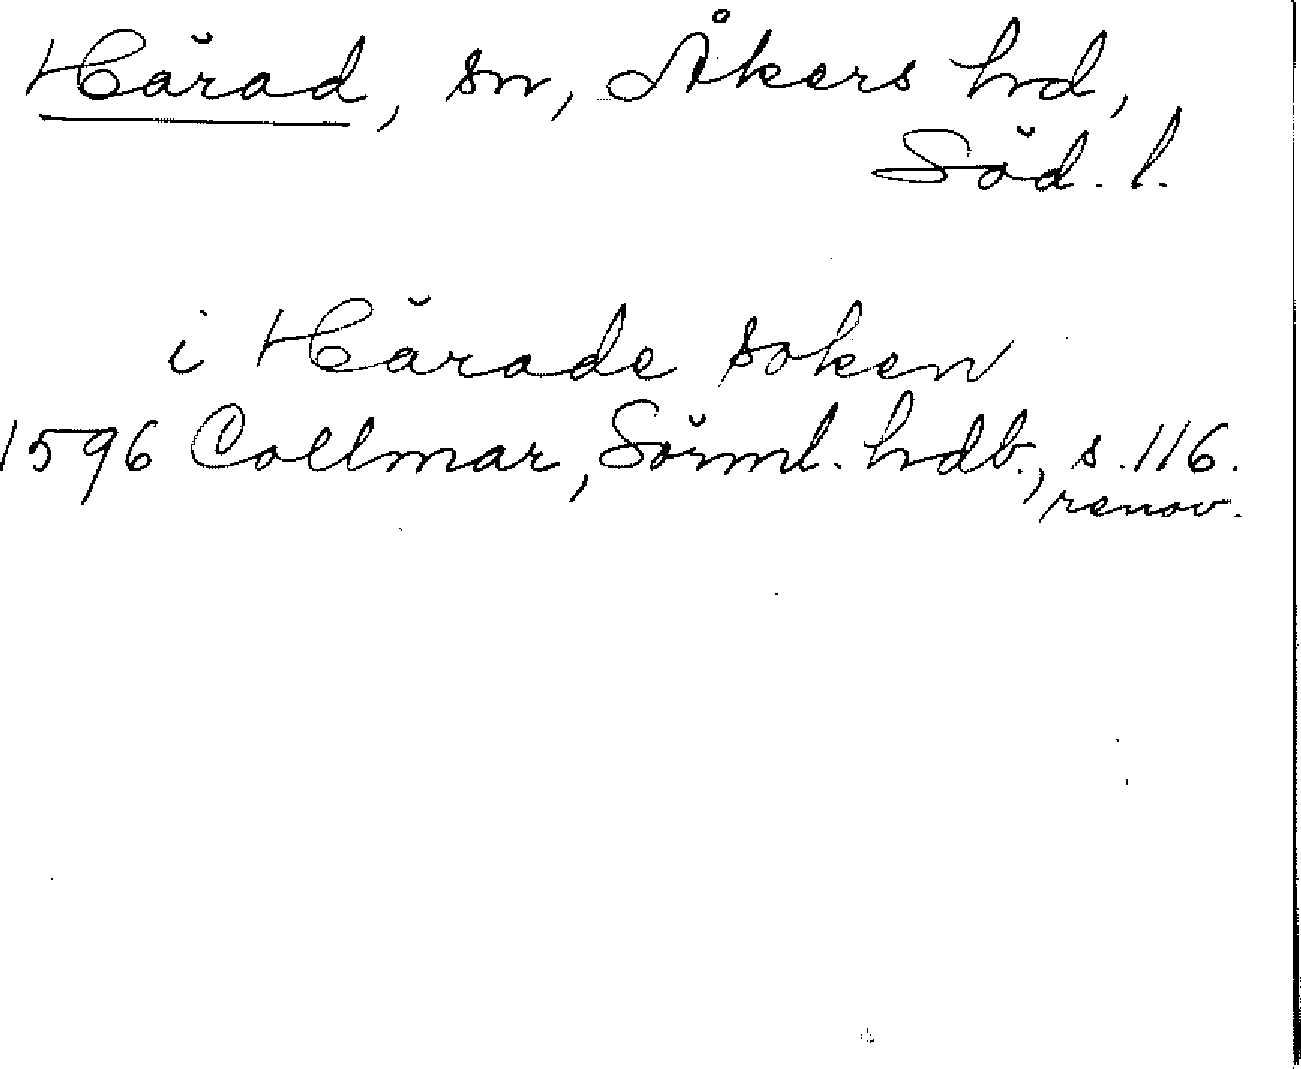 Härad, sn, Åkers hd,
Söd. l.
i Härade soken
1596 Collmar, Sörml. hdb., s. 116.
renov.